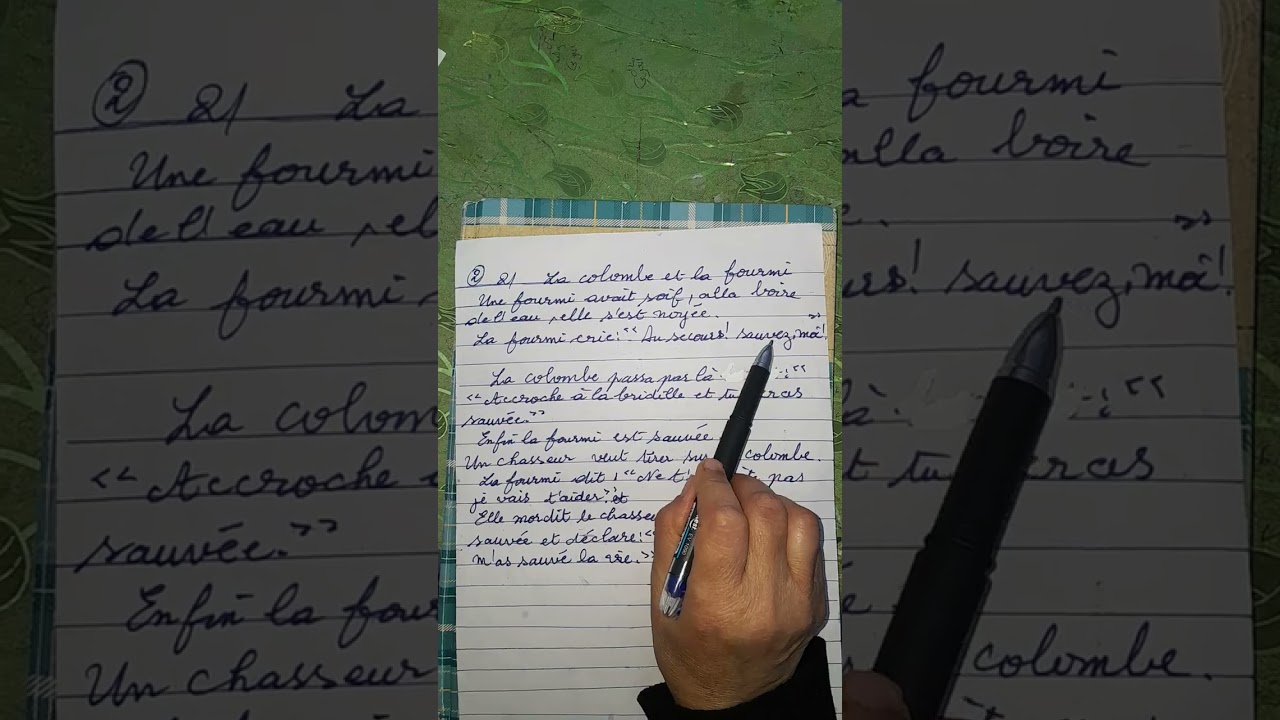 ② 21 La colombe et la fourmi
Une fourmi avait soif, alla boire
de l'eau, elle s'est noyée.
La fourmi crie: "Au secours! sauvez, moi!"
La colombe passa pas là :"
"Accroche à la bridille et tu
sauvée."
Enfin la fourmi est sauvée
Un chasseur veut tirer sur colombe.
La fourmi dit : "Ne pas
je vais t'aider." et
Elle mordit le
sauvée et déclare: "
m'as sauvé la vie."